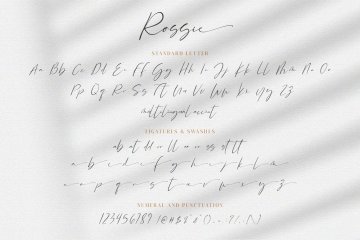 Rossie
STANDARD LETTER
Aa Bb Cc Dd Ee Ff Gg Hh Ii Jj Kk Ll Mm Nn Oo
Pp Qq Rr Ss Tt Uu Vv Ww Xx Yy Zz
multilingual accent
LIGATURES & SWASHES
a b c d e f g h i j k l m
n o p q r s t u v w x y z
NUMERAL AND PUNCTUATION